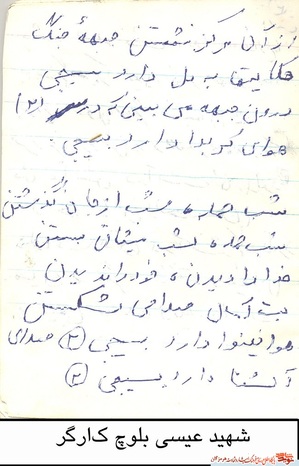 از آن مرکز نشستن جبهه جنگ
حکایتها به دل دارد بسیجی
درون جبهه می بینی که در سر (۲)
هوای کربلا دارد بسیجی
شب حمله شب از جان گذشتن
شب حمله شب میثاق بستن
خدا را دیدن و خود را ندیدن
بت آمال صدامی شکستن
هوا نینوا دارد بسیجی (۲) صدای
آشنا دارد بسیجی (۲)
شهید عیسی بلوچ کارگر